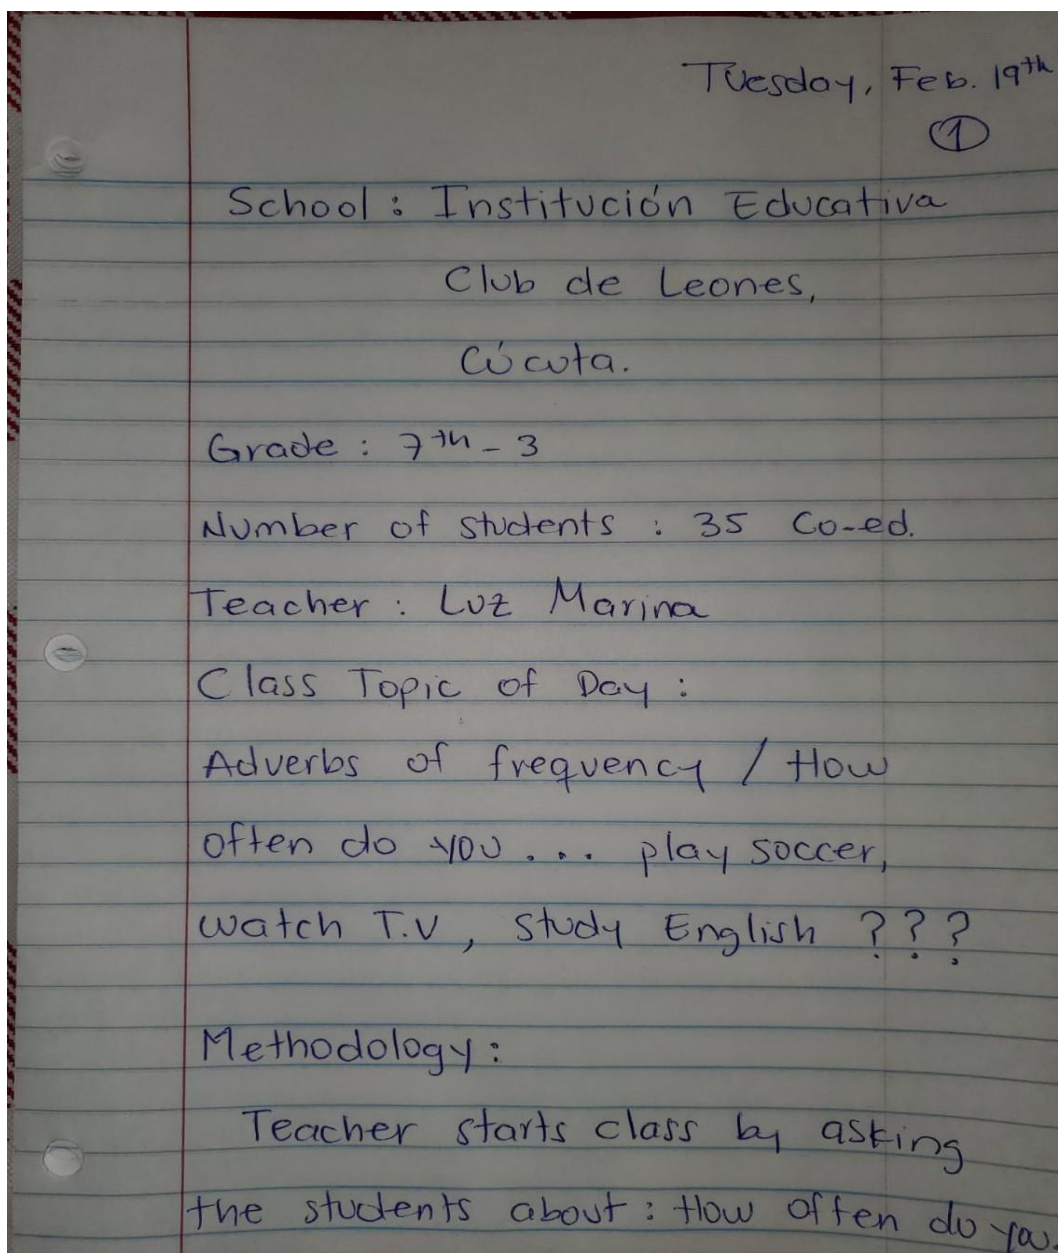 Tuesday, Feb. 19th
1
School: Institución Educativa
Club de Leones,
Cúcuta.
Grade: 7th - 3
Number of students: 35 Co-ed.
Teacher: Luz Marina
Class Topic of Day:
Adverbs of frequency / How
often do you... play soccer,
watch T.V, study English ???
Methodology:
Teacher starts class by asking
the students about: How often do you